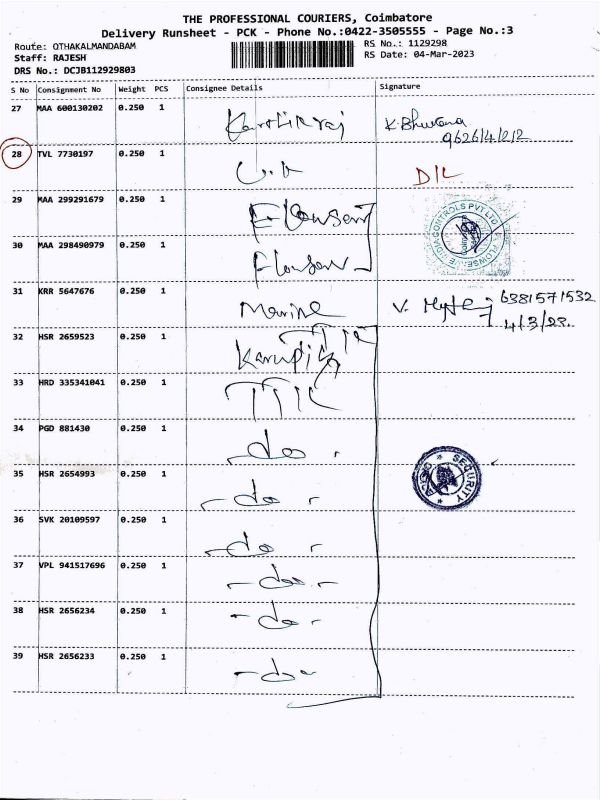 THE PROFESSIONAL COURIERS, Coimbatore
Delivery Runsheet - PCK - Phone No.:0422-3505555 - Page No.:3
Route: OTHAKALMANDABAM
RS No.: 1129298
Staff: RAJESH
RS Date: 04-Mar-2023
DRS No.: DCJB112929803
S No Consignment No Weight PCS Consignee Details Signature
27 MAA 600130202 0.250 1 Karthikraj K.Bhuvana
9626141212
28 TVL 7730197 0.250 1 D/L
29 MAA 299291679 0.250 1 Flowserve
30 MAA 298490979 0.250 1 Flowserve
31 KRR 5647676 0.250 1 Marine V. 6381571532
4/3/23.
32 HSR 2659523 0.250 1
33 HRD 335341041 0.250 1
34 PGD 881430 0.250 1 -do -
35 HSR 2654993 0.250 1 -do -
SECURITY
36 SVK 20109597 0.250 1 -do -
37 VPL 941517696 0.250 1 -do -
38 HSR 2656234 0.250 1 -do -
39 HSR 2656233 0.250 1 -do-